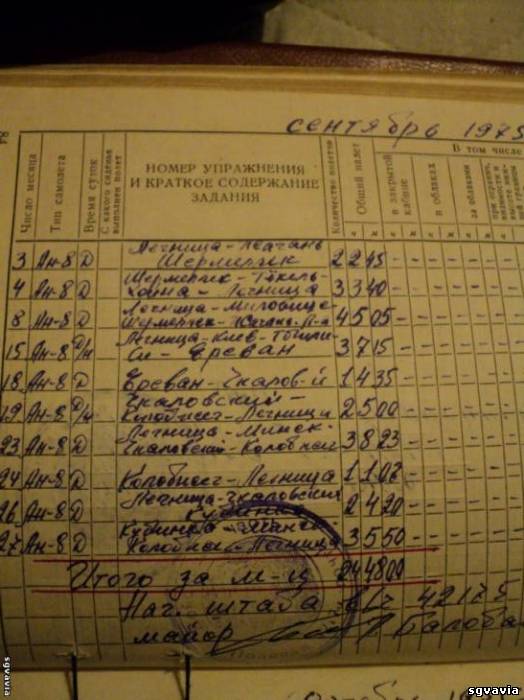 сентябрь 1975
Число месяца
Тип самолета
Время суток
С какого сиденья выполнен полет
НОМЕР УПРАЖНЕНИЯ
И КРАТКОЕ СОДЕРЖАНИЕ
ЗАДАНИЯ
Количество полетов
Общий налет
В том числе
в закрытой кабине
в облаках
за облаками
3 Ан-8 Д Легница-
Шпермберг 2 2 45 - - - -
4 Ан-8 Д Шпермберг -
- Легница 3 3 40 - - - -
8 Ан-8 Д Легница-
4 5 05 - - - -
15 Ан-8 Д/Н Легница-Киев-Тбили-
си-Ереван 3 7 15 - - - -
18 Ан-8 Д Ереван-Чкалов-й 1 4 35 - - - -
19 Ан-8 Д/Н Чкаловский-
Колобжег-Легница 2 5 00 - - - -
23 Ан-8 Д Легница-Минск-
Чкаловский-Колобжег 3 8 23 - - - -
24 Ан-8 Д Колобжег-Легница 1 1 07 - - - -
26 Ан-8 Д Легница-Чкаловский
Кубинка 2 4 20 - - - -
27 Ан-8 Д Кубинка-
Колобжег-Легница 3 5 50 - - - -
Итого за м-ц 24 48 00
Нач. штаба в/ч 42175
майор
sgvavia
sgvavia